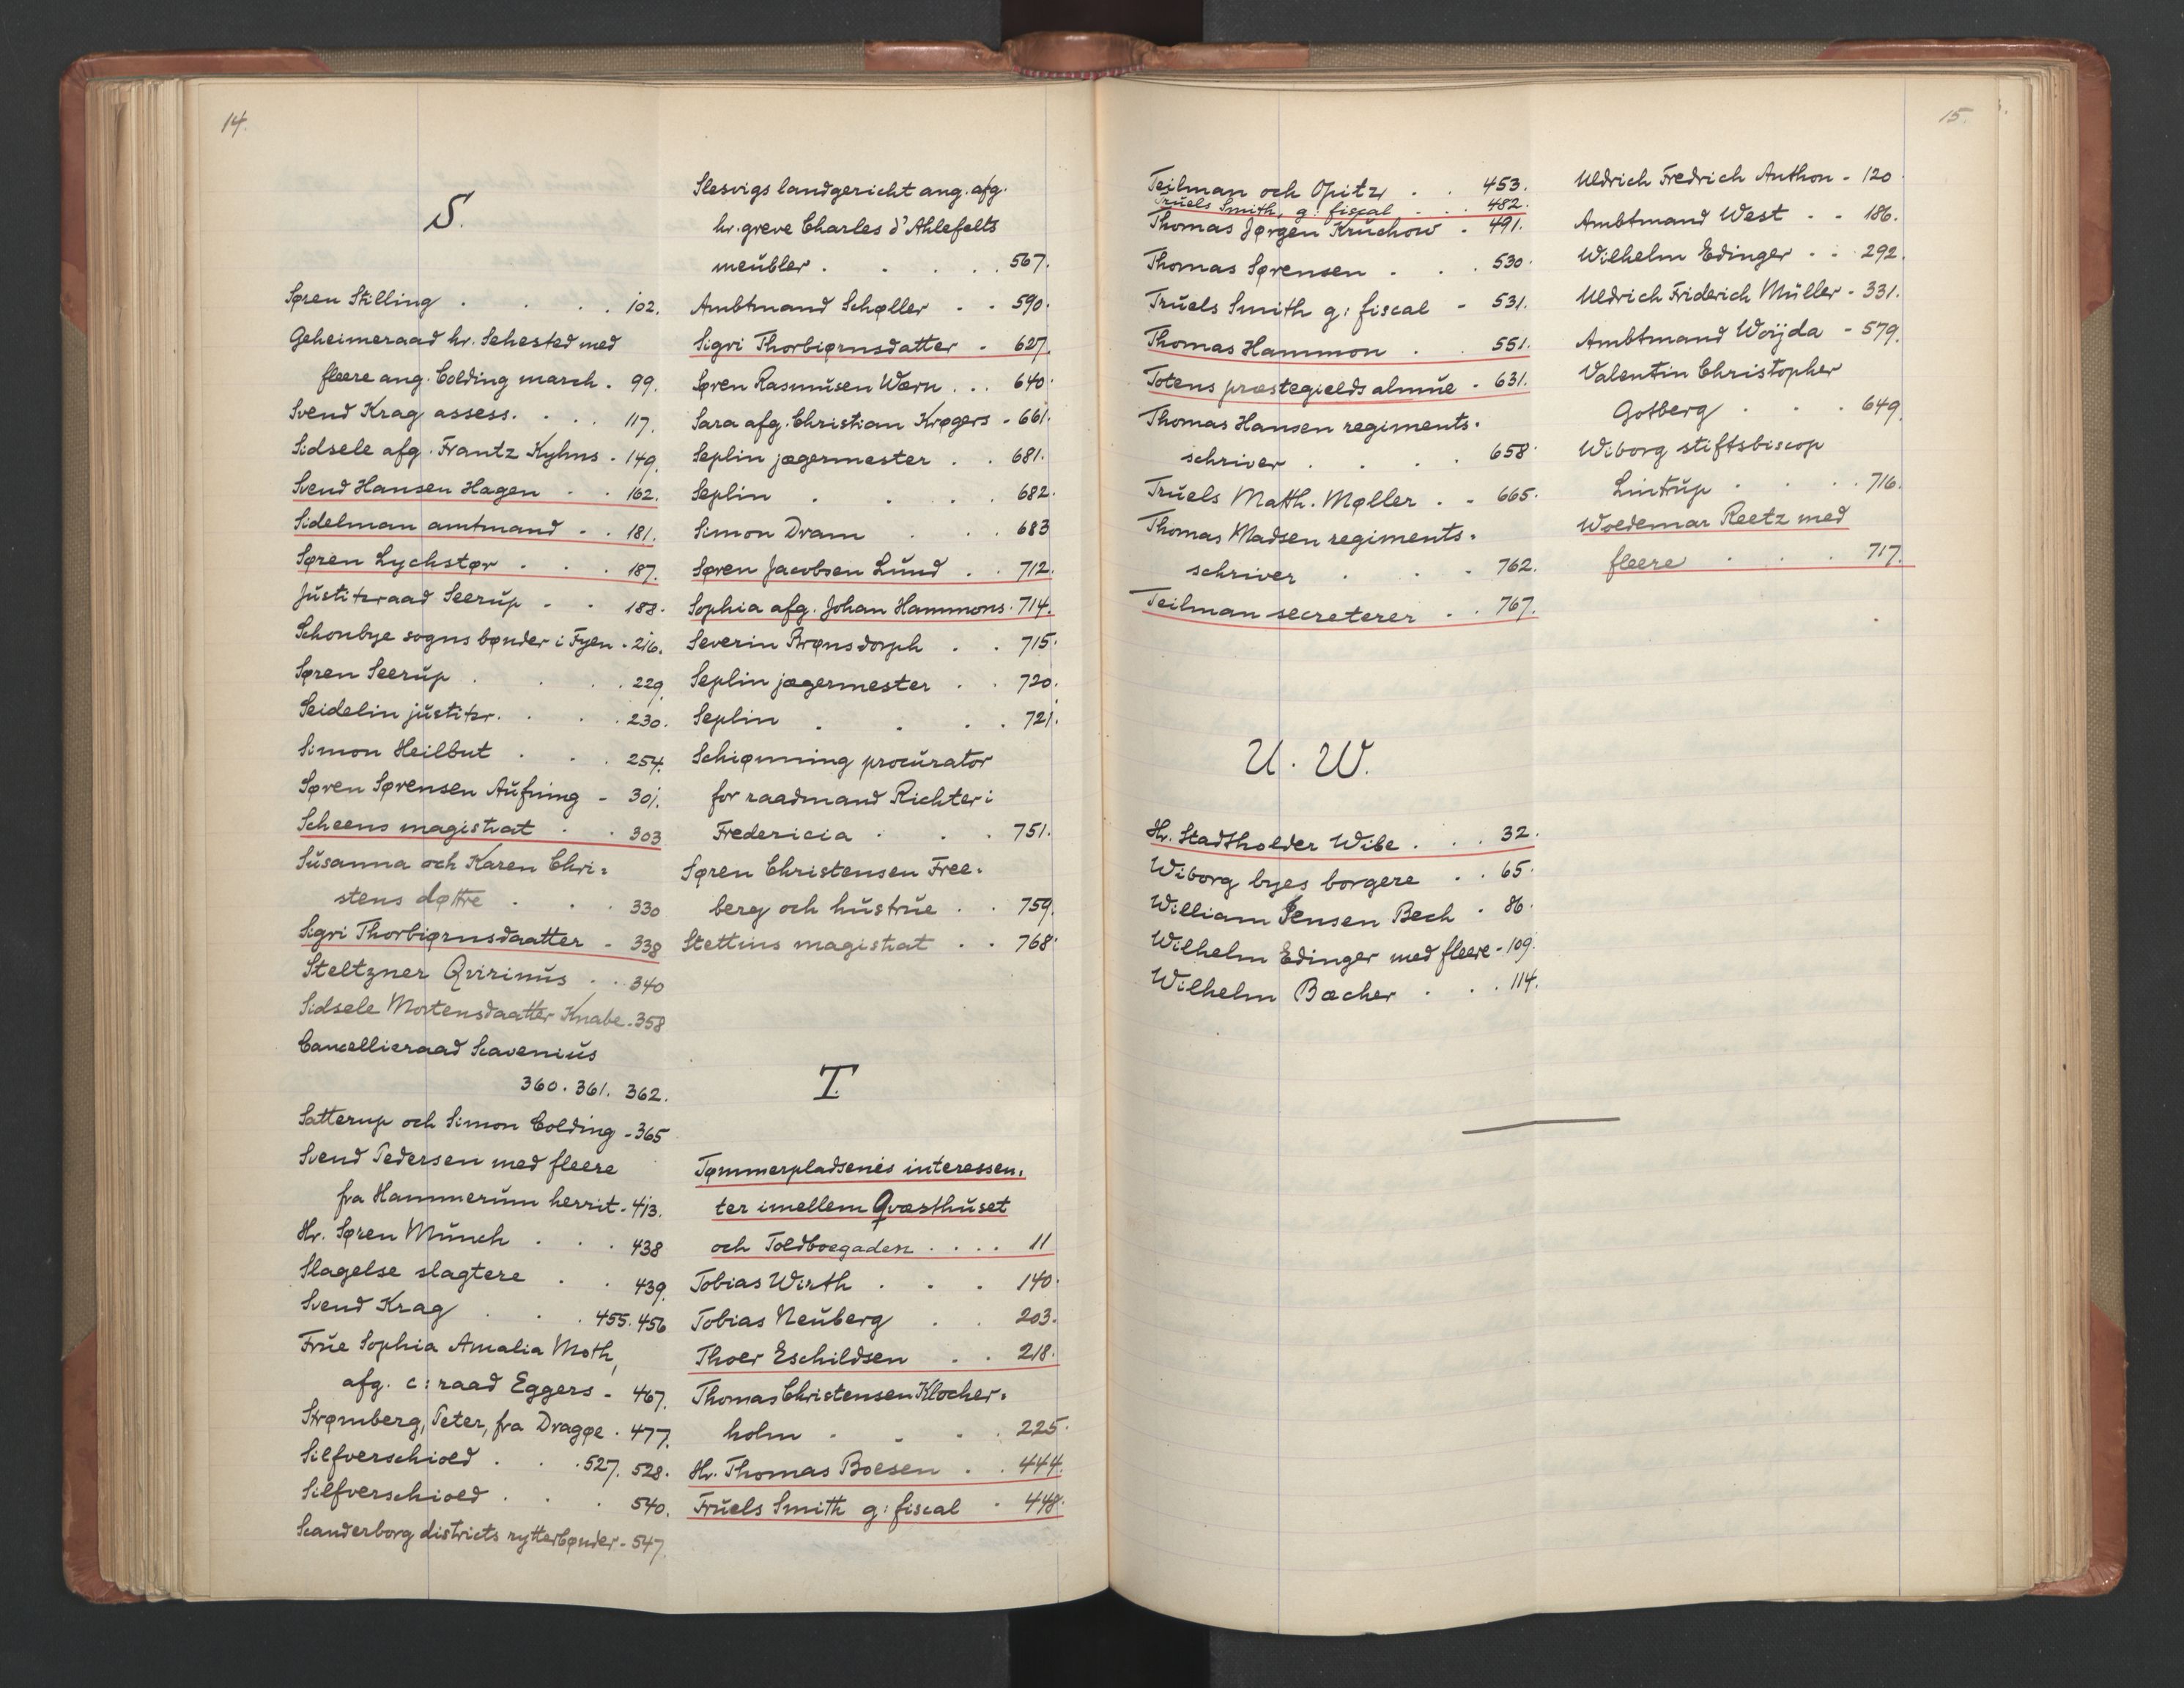 14.
S.
Søren Stilling . . . . 102.
Geheimeraad hr. Sehested med
fleere ang. Colding march . 99.
Svend Krag assess. . . . 117.
Sidsele afg. Frantz Kyhns . 149.
Svend Hansen Hagen . . 162.
Sidelman amtmand - . 181.
Søren Lychstør . . . 187.
Justitzraad Seerup - . 188.
Schonbye sogns bønder i Fyen . 216.
Søren Seerup . . . . 229.
Seidelin justitzr. . . . 230.
Simon Heilbut . . . 254.
Søren Sørensen Aufning - 301.
Scheens magistrat . . 303
Susanna och Karen Chri=
stens døttre . . . 330
Sigri Thorbiørnsdaatter - 338
Steltzner Qvirinus . . 340
Sidsele Mortensdaatter Knabe . 358
Cancellieraad Scavenius
360. 361. 362.
Satterup och Simon Colding - 365
Svend Pedersen med fleere
fra Hammerum herrit - 413.
Hr. Søren Munch . . . 438
Slagelse slagtere . . 439.
Svend Krag . . . 455. 456
Frue Sophia Amalia Moth,
afg. c: raad Eggers - 467.
Strømberg, Peter, fra Dragøe . 477.
Silfverschiold . . . 527. 528.
Silfverschiold . . . 540.
Scanderborg districts rytterbønder - 547.
Slesvigs landgericht ang. afg.
hr. greve Charles d'Ahlefelts
meubler . . . . . 567.
Ambtmand Schøller - - 590.
Sigri Thorbiørnsdatter - 627.
Søren Rasmusen Wærn . . . 640.
Sara afg. Christian Krøgers - 661.
Seplin jægermester . . 681.
Seplin . . . . 682.
Simon Dram . . . 683
Søren Jacobsen Lund . . 712.
Sophia afg. Johan Hammons . 714.
Severin Brønsdorph . . 715.
Seplin jægermester . . 720.
Seplin . . . . 721.
Schiønning procurator
for raadmand Richter i
Fredericia . . . 751.
Søren Christensen Free=
berg och hustrue . . 759.
Stettins magistrat . . 768.
T.
Tømmerpladsenes interessen=
ter imellem Qvæsthuset
och Toldboegaden . . . . 11
Tobias Wirth . . . 140.
Tobias Neuberg . . 203.
Thoer Eschildsen . . 218.
Thomas Christensen Klocher=
holm . . . . 225.
Hr. Thomas Boesen . . 444.
Truels Smith g: fiscal . 448.
15.
Teilman och Opitz . . 453.
Truels Smith, g: fiscal . . . 482.
Thomas Jørgen Kruchow . 491.
Thomas Sørensen . . . 530.
Truels Smith g: fiscal - 531.
Thomas Hammon . . 551.
Totens præstegields almue . 631.
Thomas Hansen regiments=
schriver . . . . 658.
Truels Matth. Møller . - 665.
Thomas Madsen regiments=
schriver . . . 762.
Teilman secreterer . . 767.
U. W.
Hr. Stadtholder Wibe . . . 32.
Wiborg byes borgere . . 65.
William Jensen Bech . 86.
Wilhelm Edinger med fleere - 109.
Wilhelm Bæcher . . . 114.
Uldrich Fredrich Anthon - 120
Ambtmand West . - 186.
Wilhelm Edinger . . 292.
Uldrich Friderich Müller - 331.
Ambtmand Woÿda - 579.
Valentin Christopher
Gotberg . . . 649.
Wiborg stiftsbiscop
Lintrup . . . . 716.
Woldemar Reetz med
fleere . . . 717.